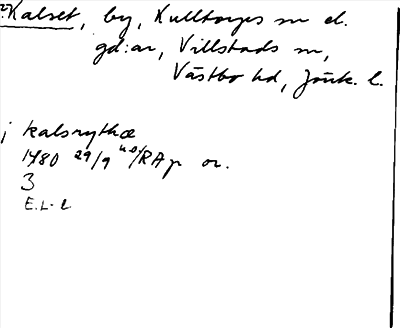 ?Kalset, by, Kulltorps sn el.
gd:ar, Villstads sn,
Västbo hd, Jönk. l.
j kalsrythæ
1480 29/9 RAp or.
3
E.L-l